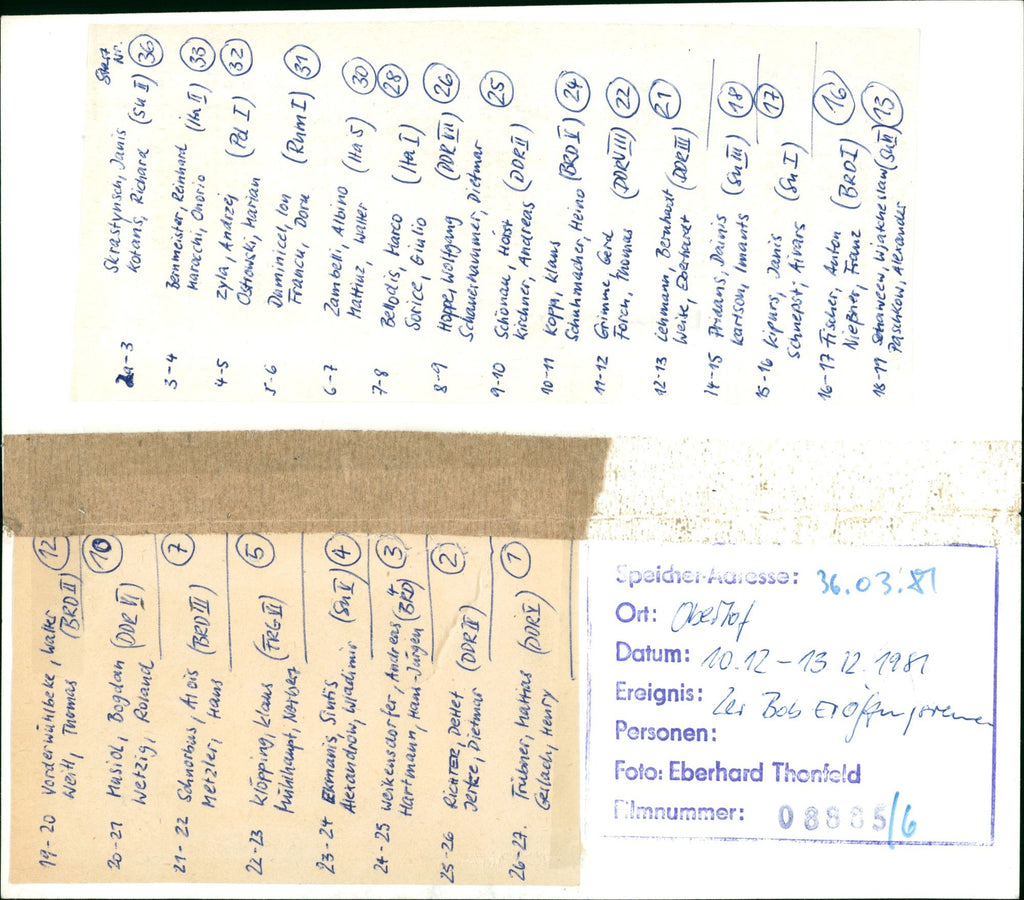 Start
Nr.
2a-3 Skrastynsch, Janis
Kotans, Richard (Su II) 36
3-4 Bernmeister, Reinhard
Marochi, Onorio (Ita II) 33
4-5 Zyla, Andrzej
Ostrowski, Marian (Pd I) 32
5-6 Duminicel, Ion
Francu, Doru (Rum I) 31
6-7 Zambelli, Albino
Mattiuz, Walter (Ita 5) 30
7-8 Bellodis, Marco
Sorice, Giulio (Ita I) 28
8-9 Hoppe, Wolfgang
Schauerhammer, Dietmar (DDR VII) 26
9-10 Schönau, Horst
Kirchner, Andreas (DDR II) 25
10-11 Kopp, Klaus
Schuhmacher, Heino (BRD V) 24
11-12 Grimme, Gerd
Forch, Thomas (DDR VIII) 22
12-13 Lehmann, Bernhardt
Weise, Eberhardt (DDR III) 21
14-15 Pridans, Dainis
Karlson, Imants (Su III) 18
15-16 Kipurs, Janis
Schnepst, Aivars (Su I) 17
16-17 Fischer, Anton
Nießner, Franz (BRD I) 16
18-19 Wjatcheslaw (Su II) 13
Paschkow, Alexander
19-20 Vorderwühlbeke, Walter
Weitl, Thomas (BRD II) 12
20-21 Musiol, Bogdan (DDR VI) 10
Wetzig, Roland
21-22 Schnorbus, Alois (BRD III) 7
Metzler, Hans
22-23 Klöpping, Klaus (FRG VI) 5
Mühlhaupt, Norbert
23-24 Ekmanis, Sintis
Alexandrow, Wladimir (Su V) 4
24-25 Weikensdorfer, Andreas 4
Hartmann, Hans-Jürgen (BRD) 3
25-26 Richter, Detlef
Jerke, Dietmar (DDR IV) 2
26-27. Trübner, Mathias
Gerlach, Henry (DDR V) 1
Speicher-Adresse: 36.03.81
Ort: Oberhof
Datum: 10.12 – 13 12.1981
Ereignis: 2er Bob Eröffnungsrennen
Personen:
Foto: Eberhard Thonfeld
Filmnummer: 08885/6